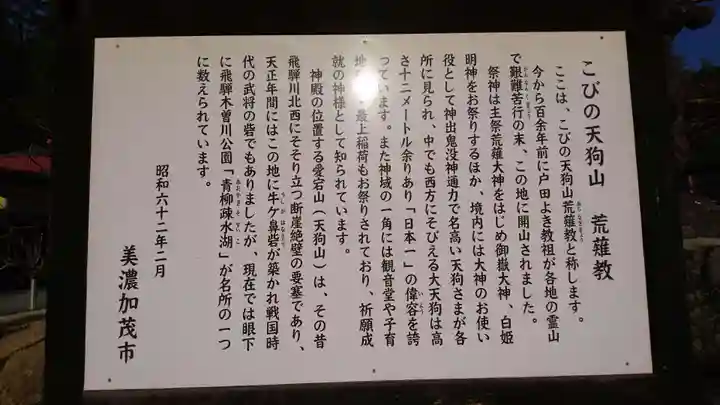 こびの天狗山　荒薙教
ここは、こびの天狗山荒薙教と称します。
今から百余年前に戸田よき教祖が各地の霊山
で艱難苦行の末、この地に開山されました。
祭神は主祭荒薙大神をはじめ御嶽大神、白姫
明神をお祭りするほか、境内には大神のお使い
役として神出鬼没神通力で名高い天狗さまが各
所に見られ、中でも西方にそびえる大天狗は高
さ十二メートル余りあり「日本一」の偉容を誇
っています。また神域の一角には観音堂や子育
地 ・最上稲荷もお祭りされており、祈願成
就の神様として知られています。
神殿の位置する愛宕山（天狗山）は、その昔
飛騨川北西にそそり立つ断崖絶壁の要塞であり、
天正年間にはこの地に牛ケ鼻砦が築かれ戦国時
代の武将の砦でもありましたが、現在では眼下
に飛騨木曽川公園「青柳疎水湖」が名所の一つ
に数えられています。
昭和六十二年二月
美濃加茂市